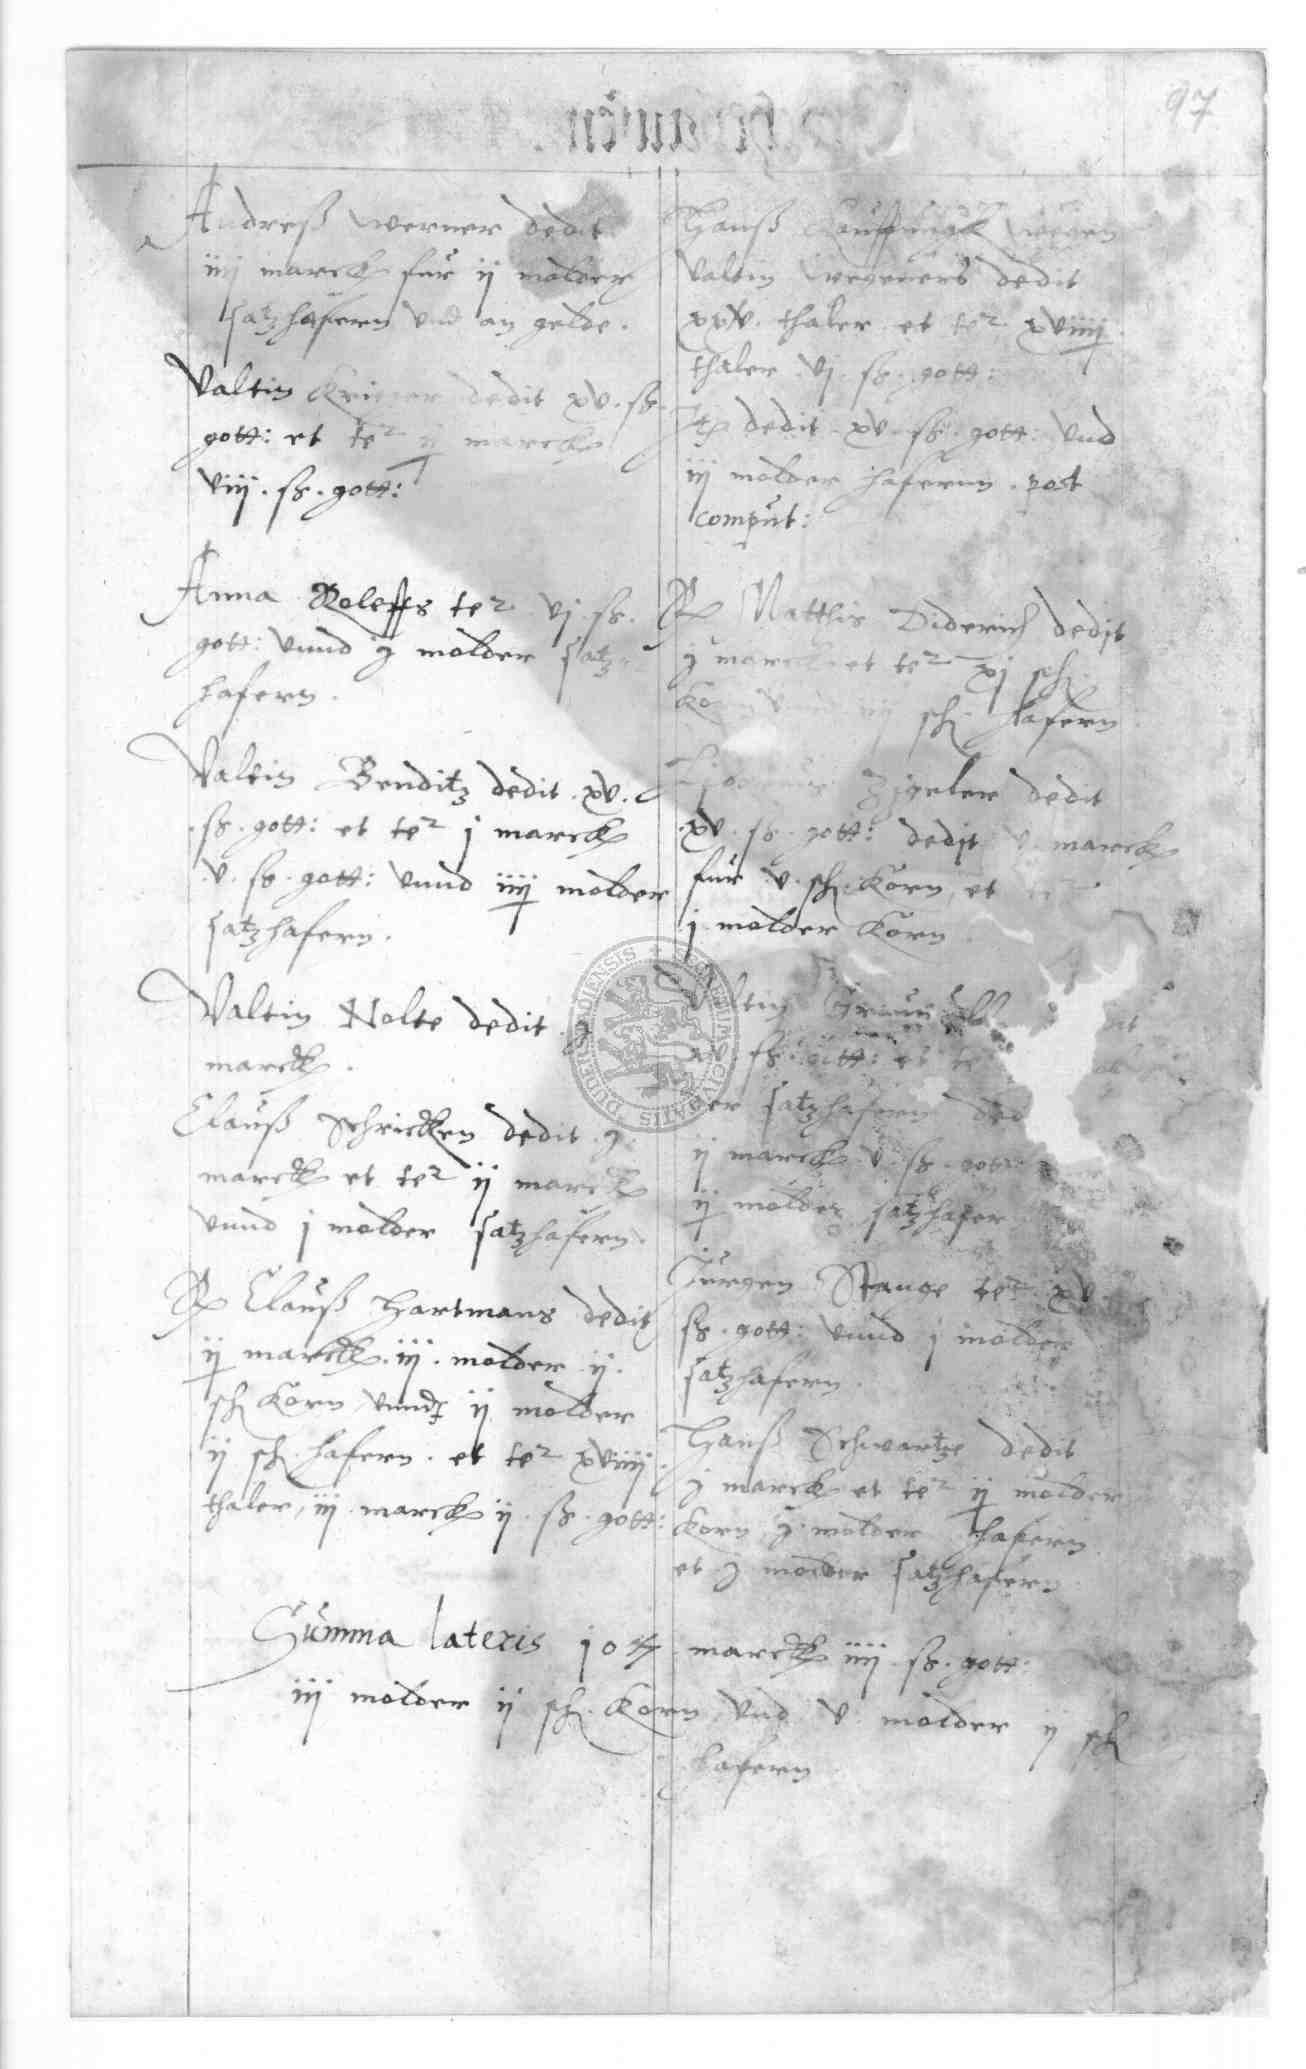 97
Andreß Werner dedit
iiij marck fur ij molder
satzhafern vnd an gelde.
Valtin Krieger dedit xv. ß.
gott: et te^r ij marck
viij. ß. gott:
Anna Roleffs te^r vj. ß.
gott: vnnd j molder satz
hafern.
Valtin Benditz dedit. xv.
. ß. gott: et te^r j marck
. v. ß. gott: vnnd iiij molder
satzhafern.
Valtin Nolte dedit. j
marck.
Clauß Schricken dedit. j.
marck et te^r ij marck
vnnd j molder satzhafern.
R Clauß Hartmans dedit
ij marck. iij. molder ij.
sch Korn vnndt ij molder
ij sch hafern. et te^r xviiij
thaler, iij. marck ij. ß. gott:
Hanß wegen
Valtin Wegeners dedit
xxv. thaler et te^r xviiij
thaler vj. ß. gott:
It dedit xv. ß. gott: vnd
iij molder hafernn. post
comput:
R Matthis Diderich dedit
j marck et te^r xj sch
Korn vnnd iij sch hafern
Zigeler dedit
. xv. ß. gott: dedit v. marck
fur v. sch. Korn, et te^r
j molder Korn.
Valtin
xv. ß. gott: et te
der satzhafern ded
ij marck v. ß. gott:
ij molder satzhafer
Jurgen Stange te^r xv.
ß. gott: vnnd j molder
satzhafern.
Hanß Schwartze dedit
j marck et te^r ij molder
Korn j molder hafern
et j molder satzhafern
Summa lateris marck iiij. ß. gott:
iij molder ij sch. Korn vnd v. molder ij sch
hafern